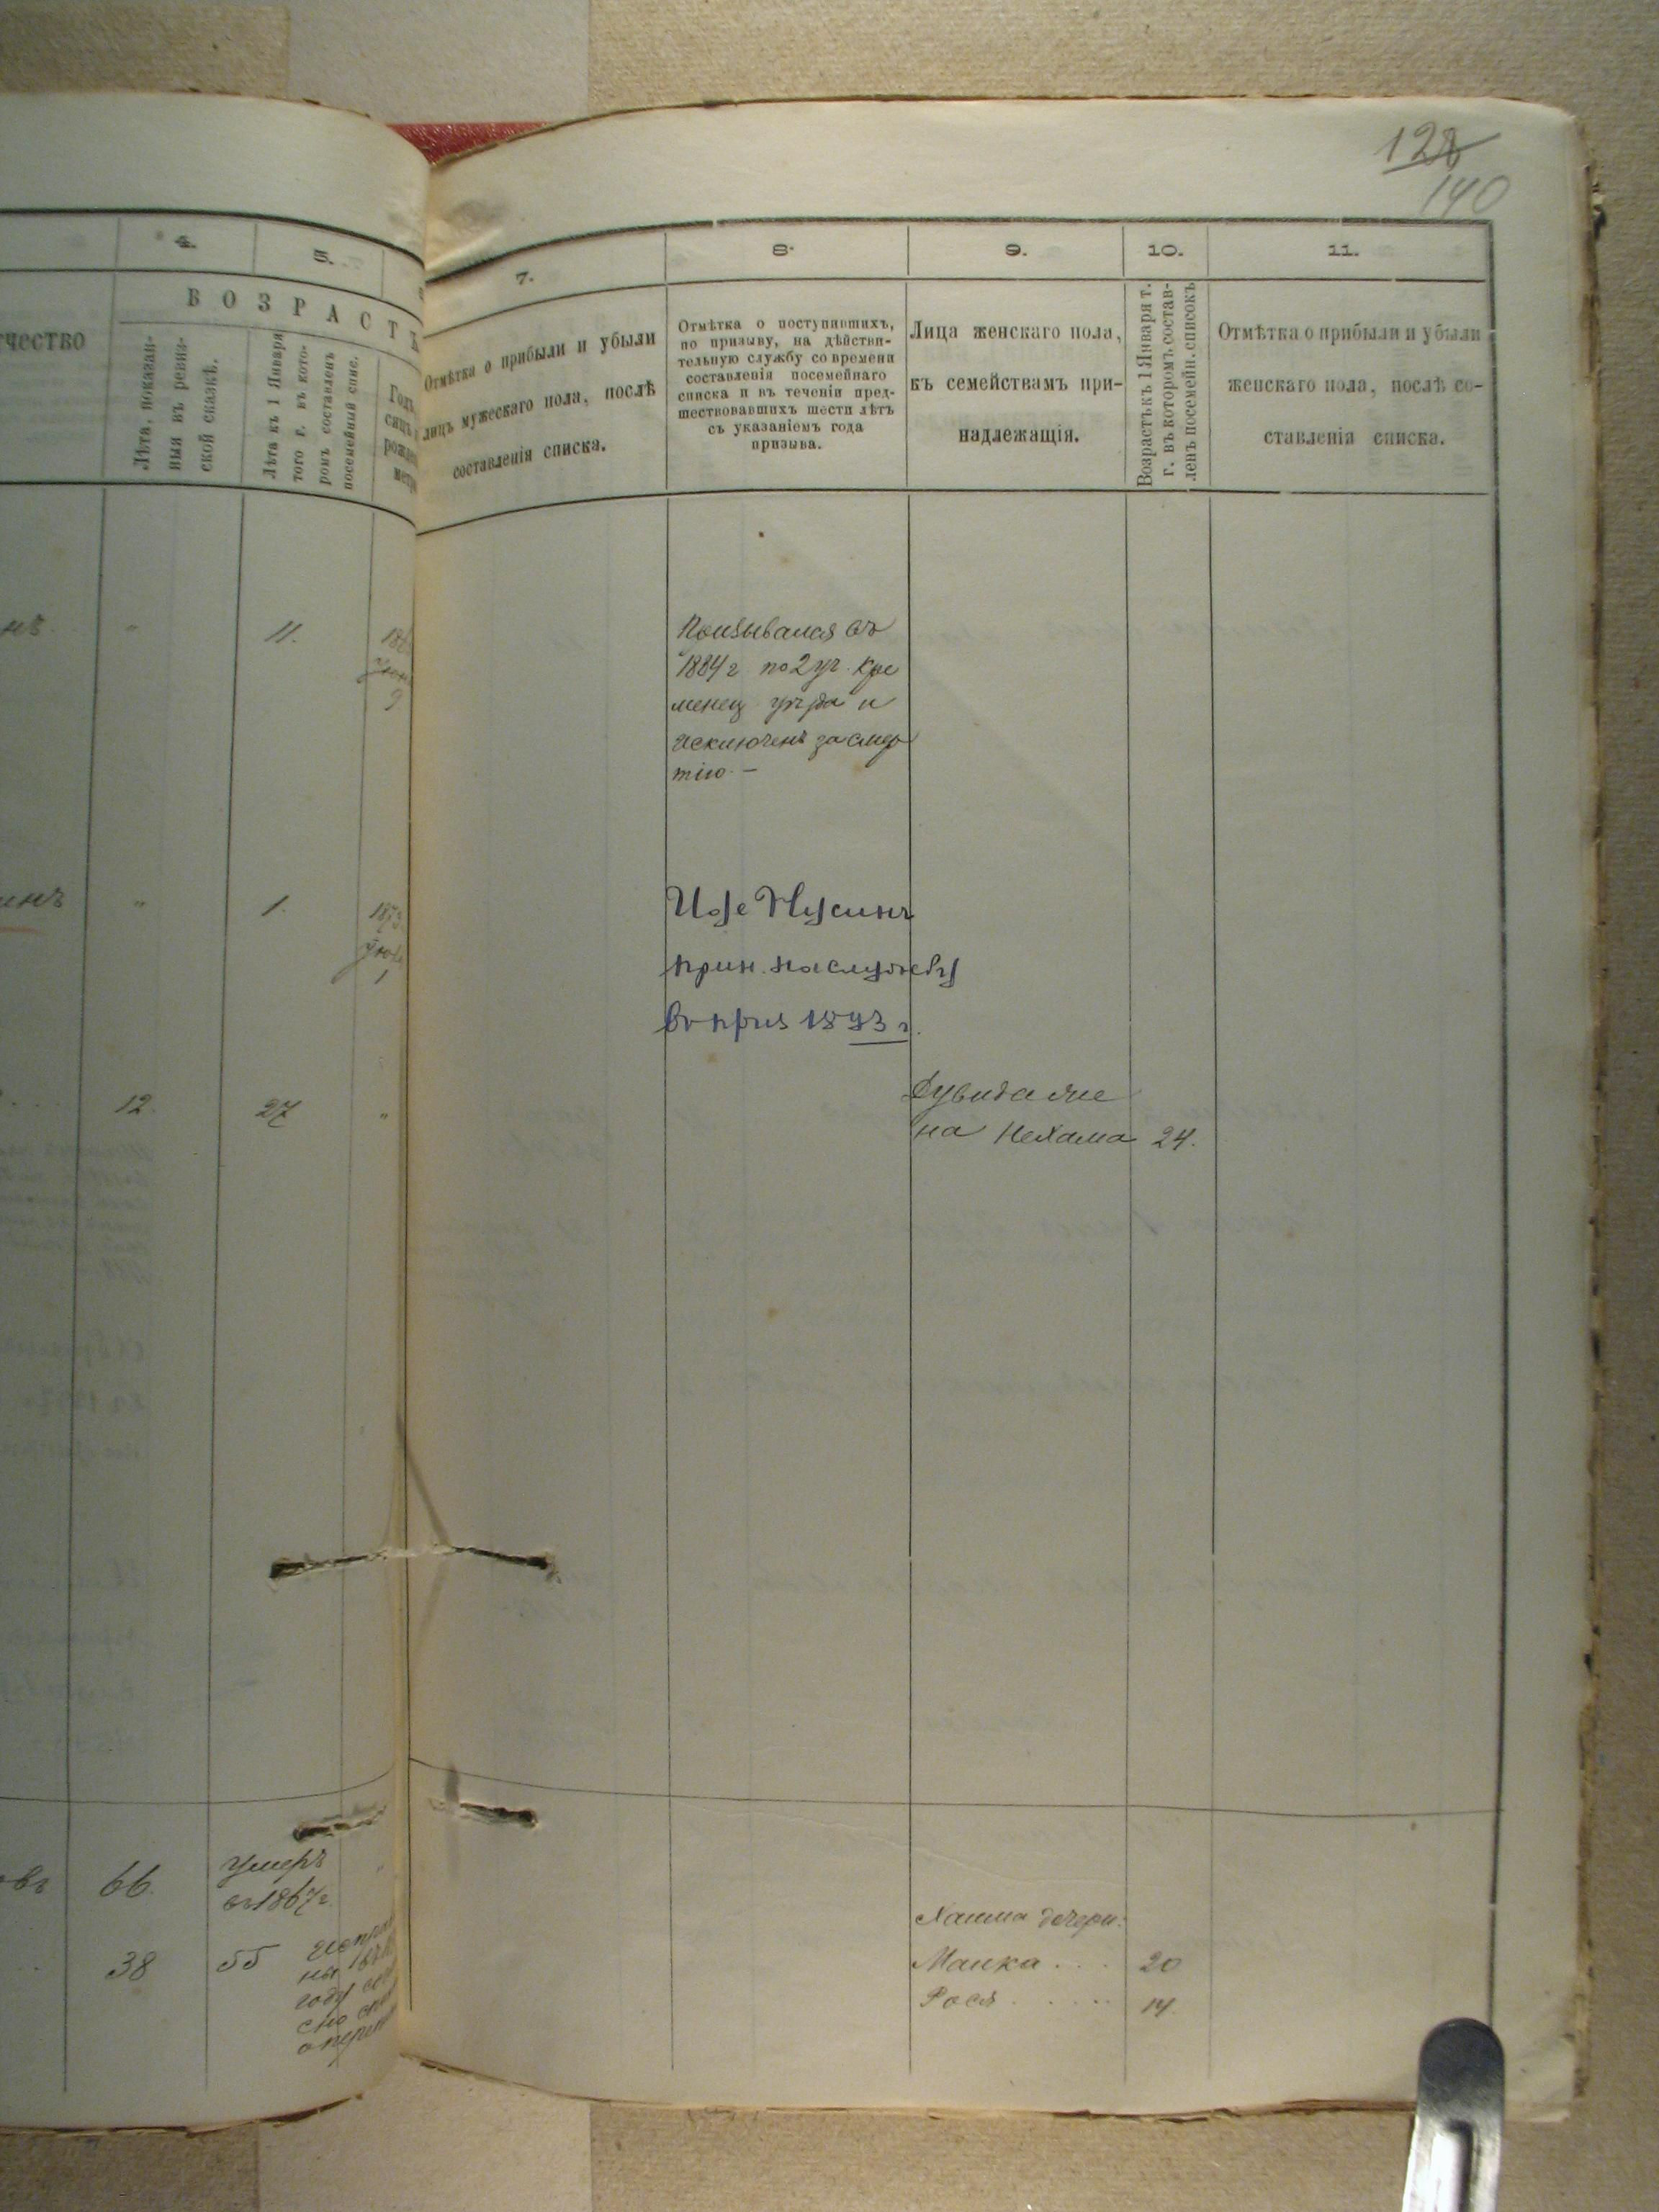 128
140
4.
5.
7.
8.
9.
10.
11.
чество
ВОЗРАСТЪ
Лѣта, показан-
ныя въ ревиз-
ской сказкѣ.
Лѣта къ 1 Января
того г. въ кото-
ромъ составленъ
посемейный спис.
Отмѣтка о прибыли и убыли
лицъ мужескаго пола, послѣ
составленія списка.
Отмѣтка о поступившихъ,
по призыву, на дѣйстви-
тельную службу со времени
составленія посемейнаго
списка и въ теченіи пред-
шествовавшихъ шести лѣтъ
съ указаніемъ года
призыва.
Лица женскаго пола,
къ семействамъ при-
надлежащія.
Возрастъ къ 1 Января т.
г. въ которомъ состав-
ленъ посемейн. списокъ
Отмѣтка о прибыли и убыли
женскаго пола, послѣ со-
ставленія списка.
11.
9
Призывался въ
1884 г по 2 уч. Кре
менец уѣзда и
исключенъ за смер
тію. —
1.
1873
1
Нусинъ
прин. на службу
въ приз 1893 г.
12.
27
"
на Нехама 24.
овъ 66.
Умеръ
въ 1867 г.
38
55
году
Хаима дочери:
Манка . . . 20
Рося . . . . . 14.